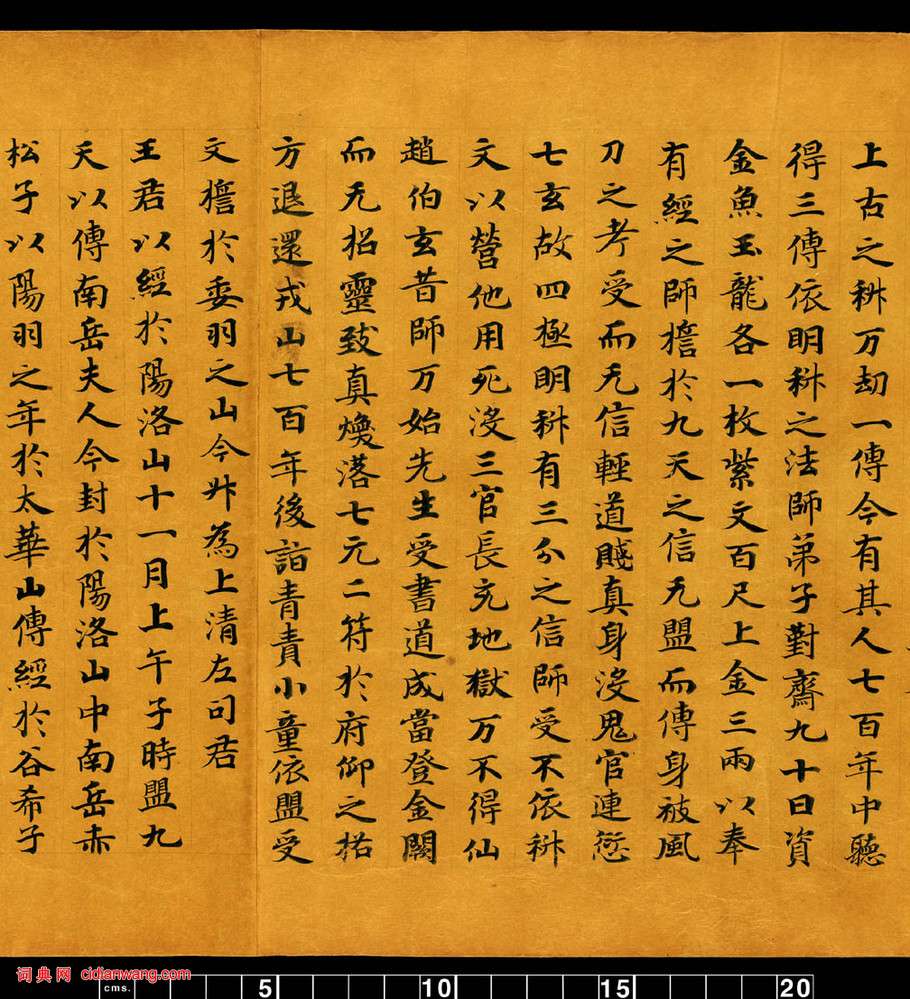 上古之科万劫一傳今有其人七百年中聽
得三傳依明科之法師弟子對齋九十日資
金魚玉龍各一枚紫文百尺上金三兩以奉
有經之師擔於九天之信无盟而傳身被風
刀之考受而无信輕道賤真身没鬼官連愆
七玄故四極明科有三分之信師受不依科
文以營他用死没三官長充地獄万不得仙
趙伯玄昔師万始先生受書道成當登金闕
而无招靈致真㷟落七元二符於府仰之格
方退還戎山七百年後詣青責小童依盟受
文擔於委羽之山今升為上清左司君
王君以經於陽洛山十一月上午子時盟九
天以傳南岳夫人今封於陽洛山中南岳赤
松子以陽羽之年於太華山傳經於谷希子
词典网 cidianwang.com
cms. 5 10 15 20